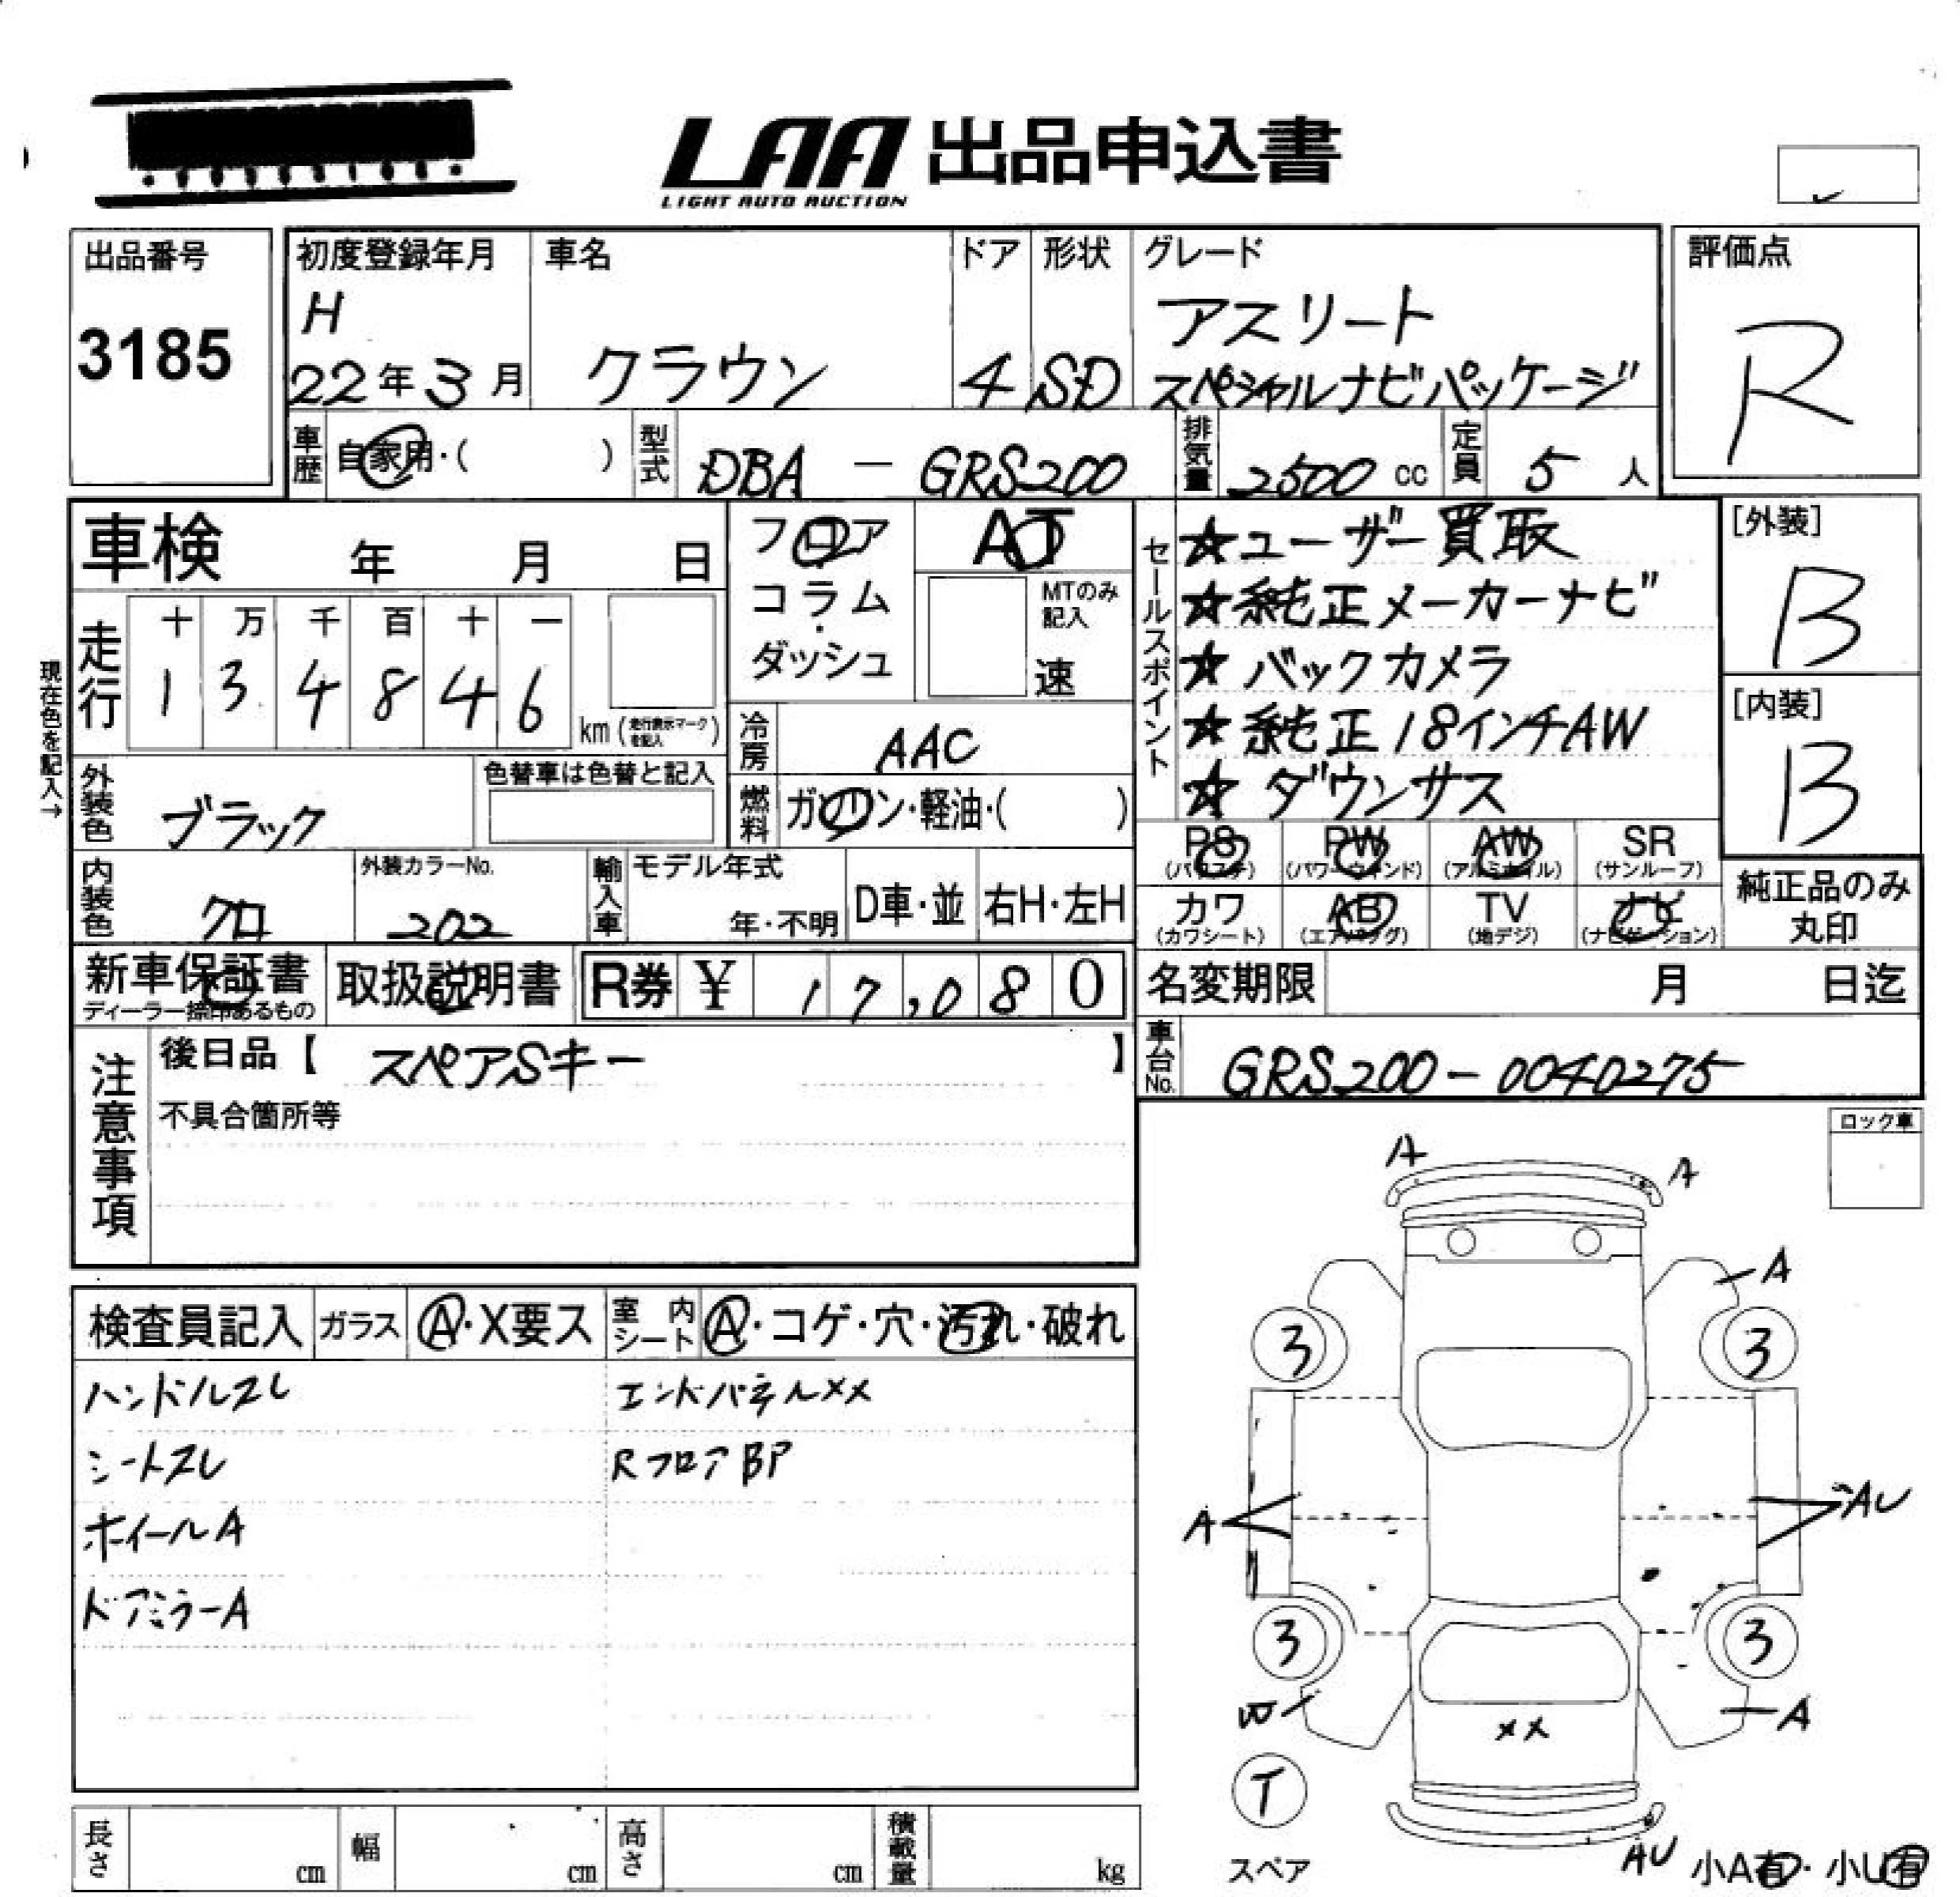 LAA 出品申込書
LIGHT AUTO AUCTION
出品番号
3185
初度登録年月
H
22年3月
車名
クラウン
ドア
4
形状
SD
グレード
アスリート
スペシャルナビパッケージ
評価点
R
車歴
自家用・( )
型式
DBA - GRS200
排気量
2500 cc
定員
5 人
車検 年 月 日
フロア
コラム
・
ダッシュ
AT
MTのみ
記入
速
セールスポイント
☆ユーザー買取
☆純正メーカーナビ
☆バックカメラ
☆純正18インチAW
☆ダウンサス
[外装]
B
[内装]
B
現在色を記入→
走行
十 万 千 百 十 一
1 3 4 8 4 6
km(走行表示マークを記入)
冷房
AAC
外装色
ブラック
色替車は色替と記入
燃料
ガソリン・軽油・( )
PS
(パワステ)
PW
(パワーウィンド)
AW
(アルミホイル)
SR
(サンルーフ)
カワ
(カワシート)
AB
(エアバッグ)
TV
(地デジ)
ナビ
(ナビゲーション)
純正品のみ
丸印
内装色
クロ
外装カラーNo.
202
輸入車
モデル年式
年・不明
D車・並
右H・左H
新車保証書
ディーラー捺印あるもの
取扱説明書
R券 ¥ 17,080
名変期限 月 日迄
車台No.
GRS200-0040275
注意事項
後日品【 スペアSキー 】
不具合箇所等
ロック車
検査員記入
ガラス
A・X要ス
室内シート
A・コゲ・穴・汚れ・破れ
ハンドルスレ
エンドパネルXX
シートスレ
RフロアBP
ホイールA
ドアミラーA
A
A
A
3
3
A
AU
3
3
W
A
XX
T
スペア
AU
小A有・小U有
長さ cm
幅 cm
高さ cm
積載量 kg